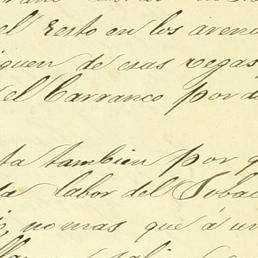 el resto en los arena
iguen de esas vegas
el Carranco por d
ta tambien por q
la labor del Tabac
no mas que á un